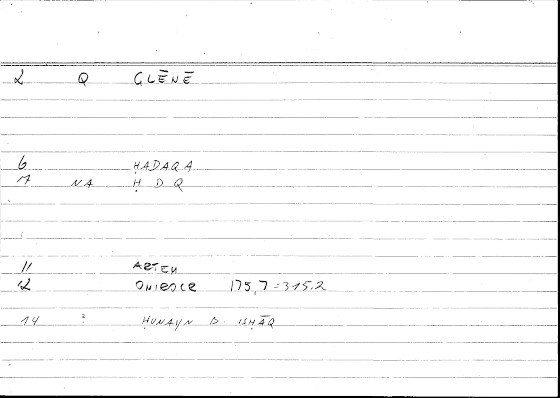 2 Q GLĒNĒ
6 ḤADAQA
7 NA Ḥ D Q
11 ARTEM
12 ONIROCR 175,7 = 315.2
14 : ḤUNAYN B. ISḤĀQ